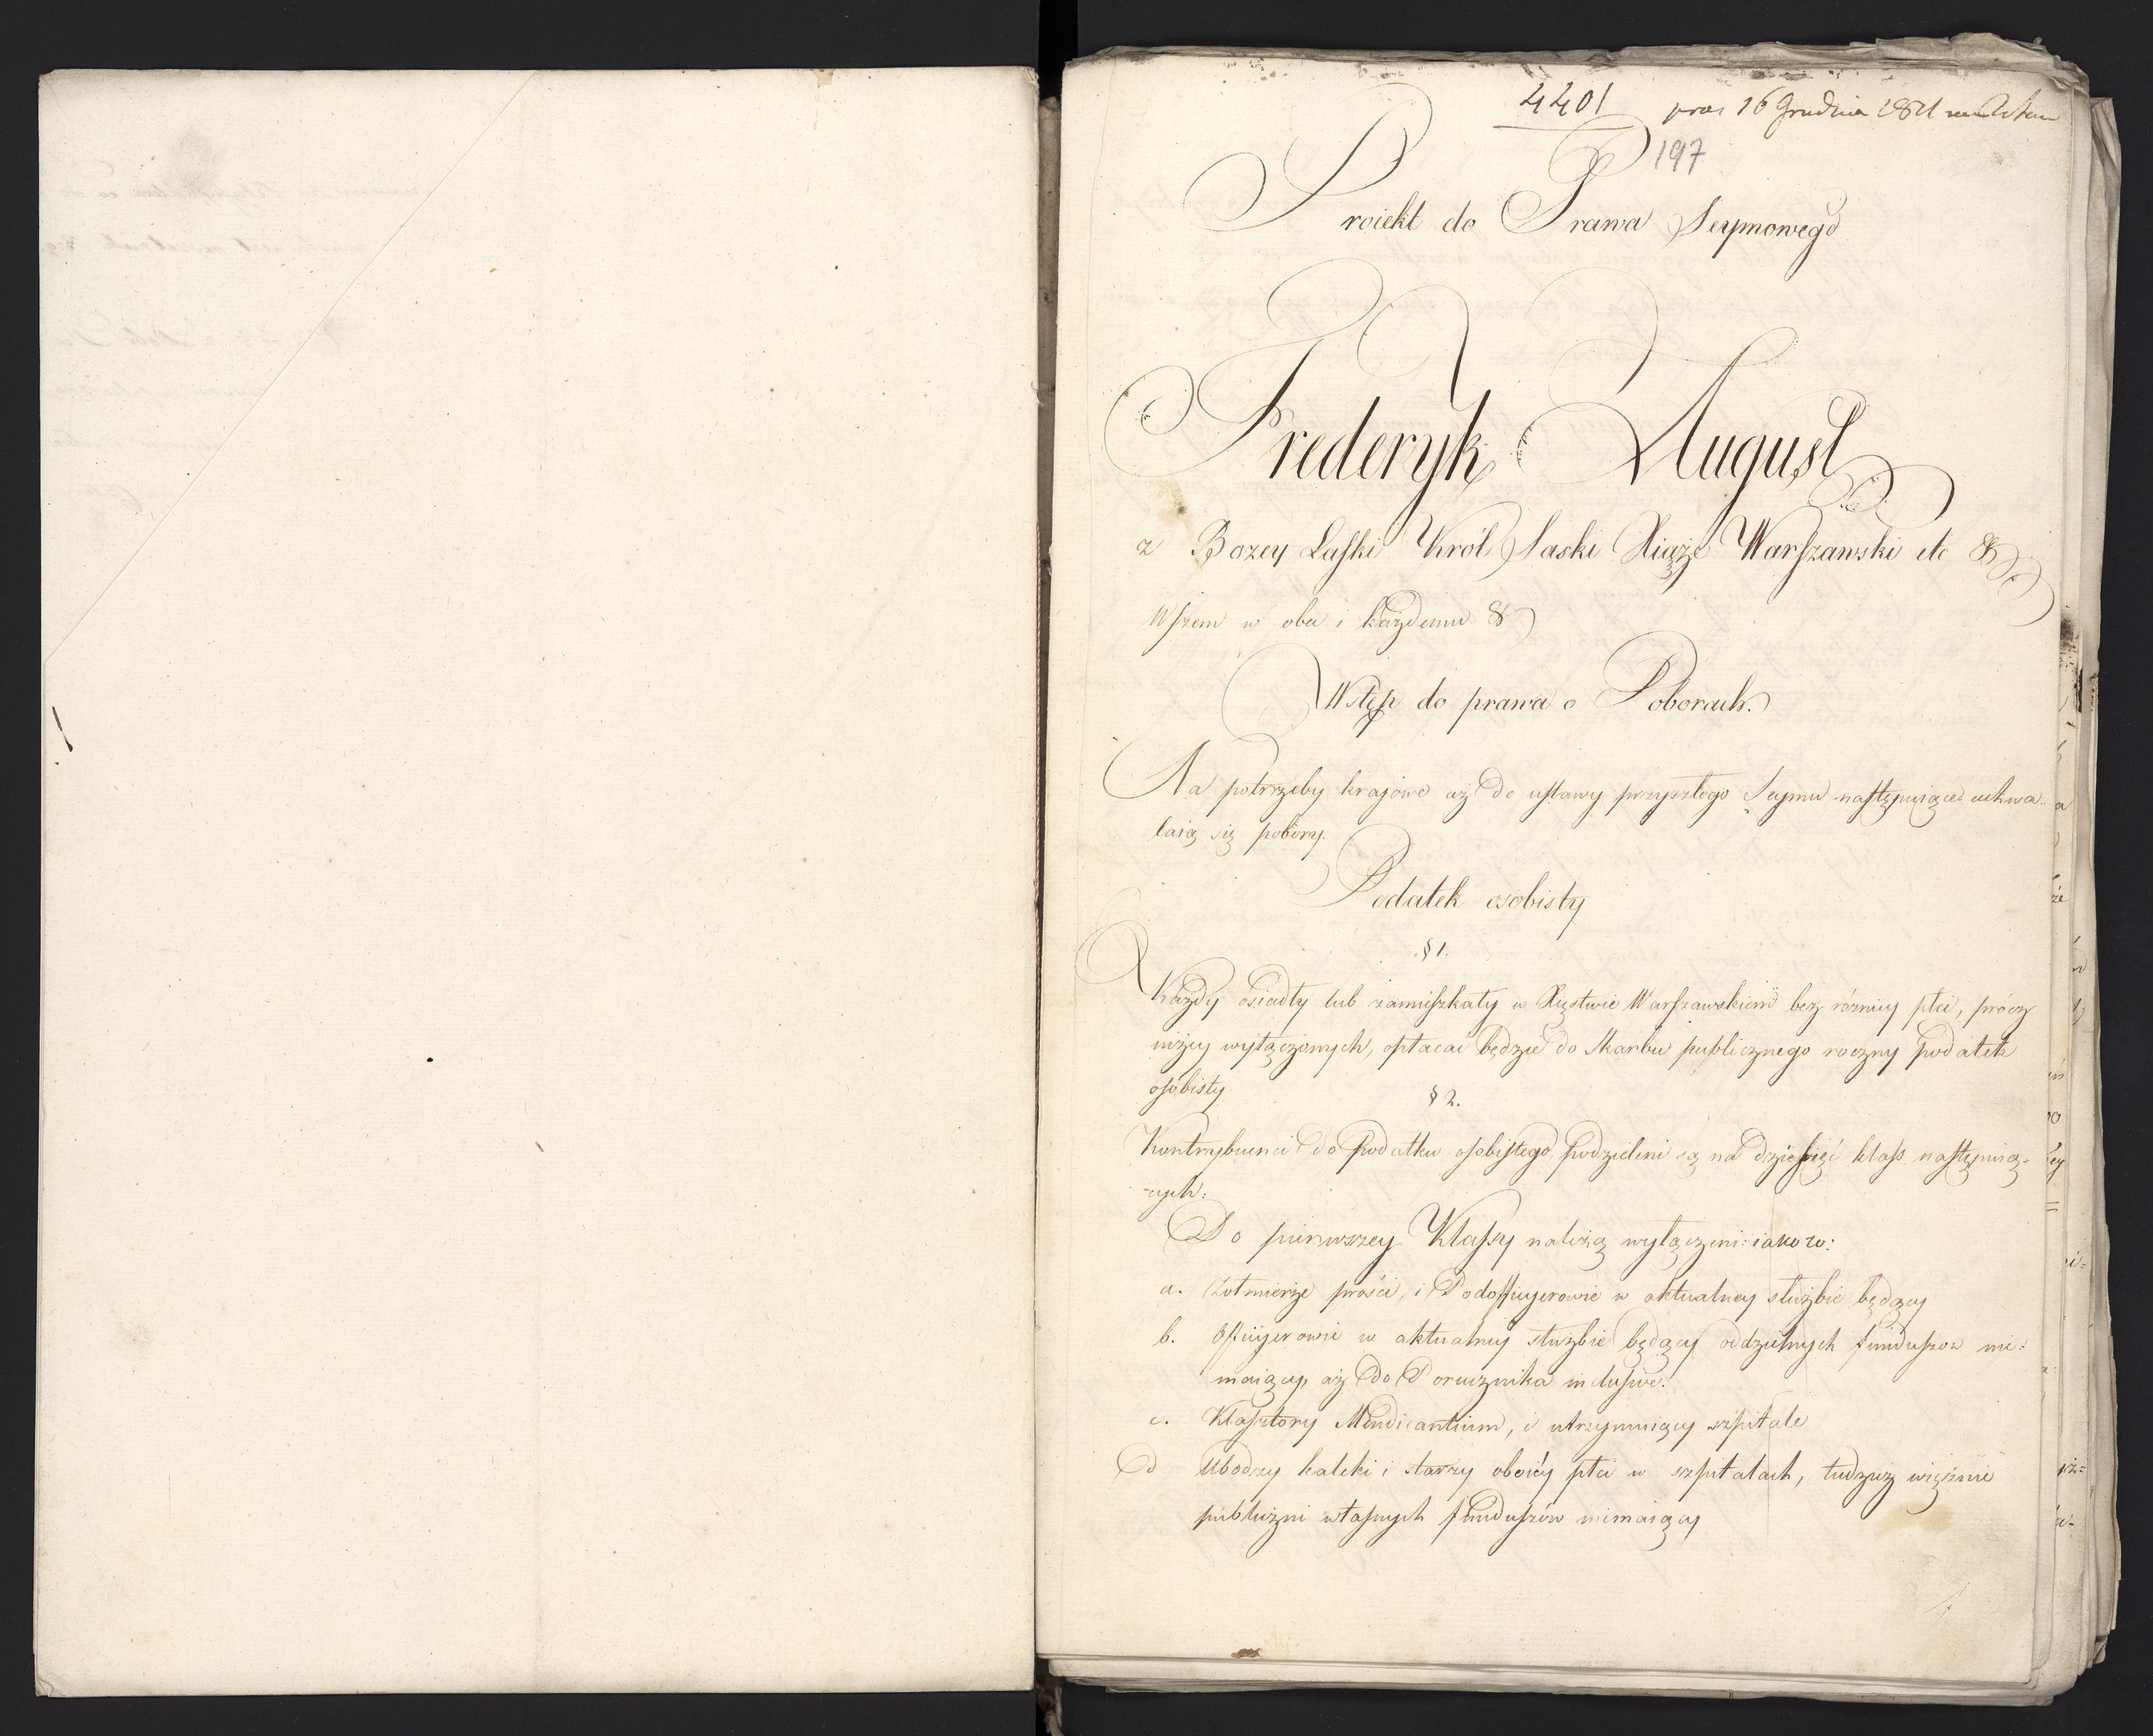 4401 prae 16 Grudnia 1811
197
Proiekt do Prawa Seymowego
Fryderyk August
z Bozey Laski Król Saski Xiąże Warszawski etc &
Wszem w obec i każdemu &
Wstęp do prawa o Poborach.
Na potrzeby krajowe aż do ustawy przyszłego Seymu następuiące uchwa-
laią się pobory.
Podatek osobisty
§ 1.
Każdy osiadły lub zamieszkały w Xięstwie Warszawskiem bez różnicy płci, prócz
niżey wyłączonych, opłacać będzie do Skarbu publicznego roczny podatek
osobisty
§ 2.
Kontrybuenci do podatku osobistego podzieleni są na dziesięć klass następuią-
-cych:
Do pierwszey Klassy należą wyłączeni: iako to:
a. Żołnierze prości, i Podofficyerowie w aktualney służbie będący
b. Officyerowie w aktualney służbie będący oddzielnych funduszow nie:
maiący, aż do Porucznika inclusive.
c. Klasztory Mendicantium, i utrzymuiący szpitale
d Ubodzy kaleki i starzy oboiey płci w szpitalach, tudzież więźnie
publiczni własnych funduszów niemaiący